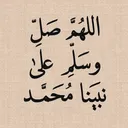 اللهُمَّ صَلِّ
وسَلِّم علىٰ
نبينا مُحَمَّد